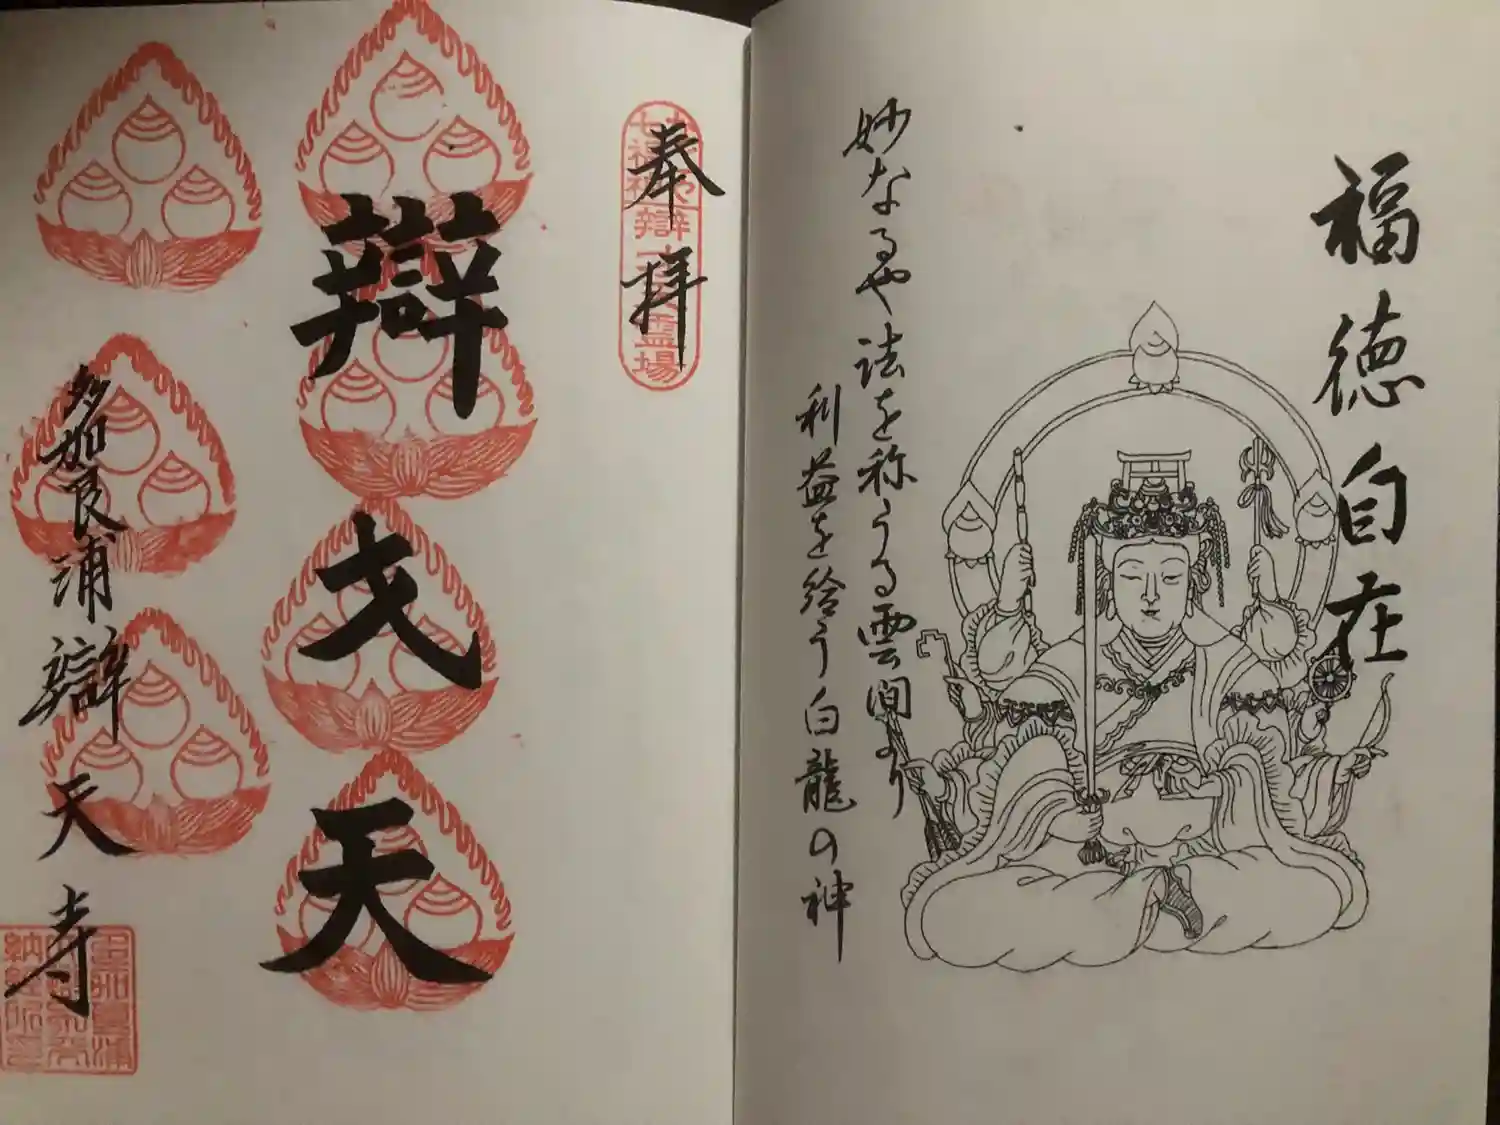 福徳自在
妙なるや法を称うる雲間より
利益を給う白龍の神
奉拝
なごや七福神 辯才天霊場
辯才天
多加良浦辯天寺